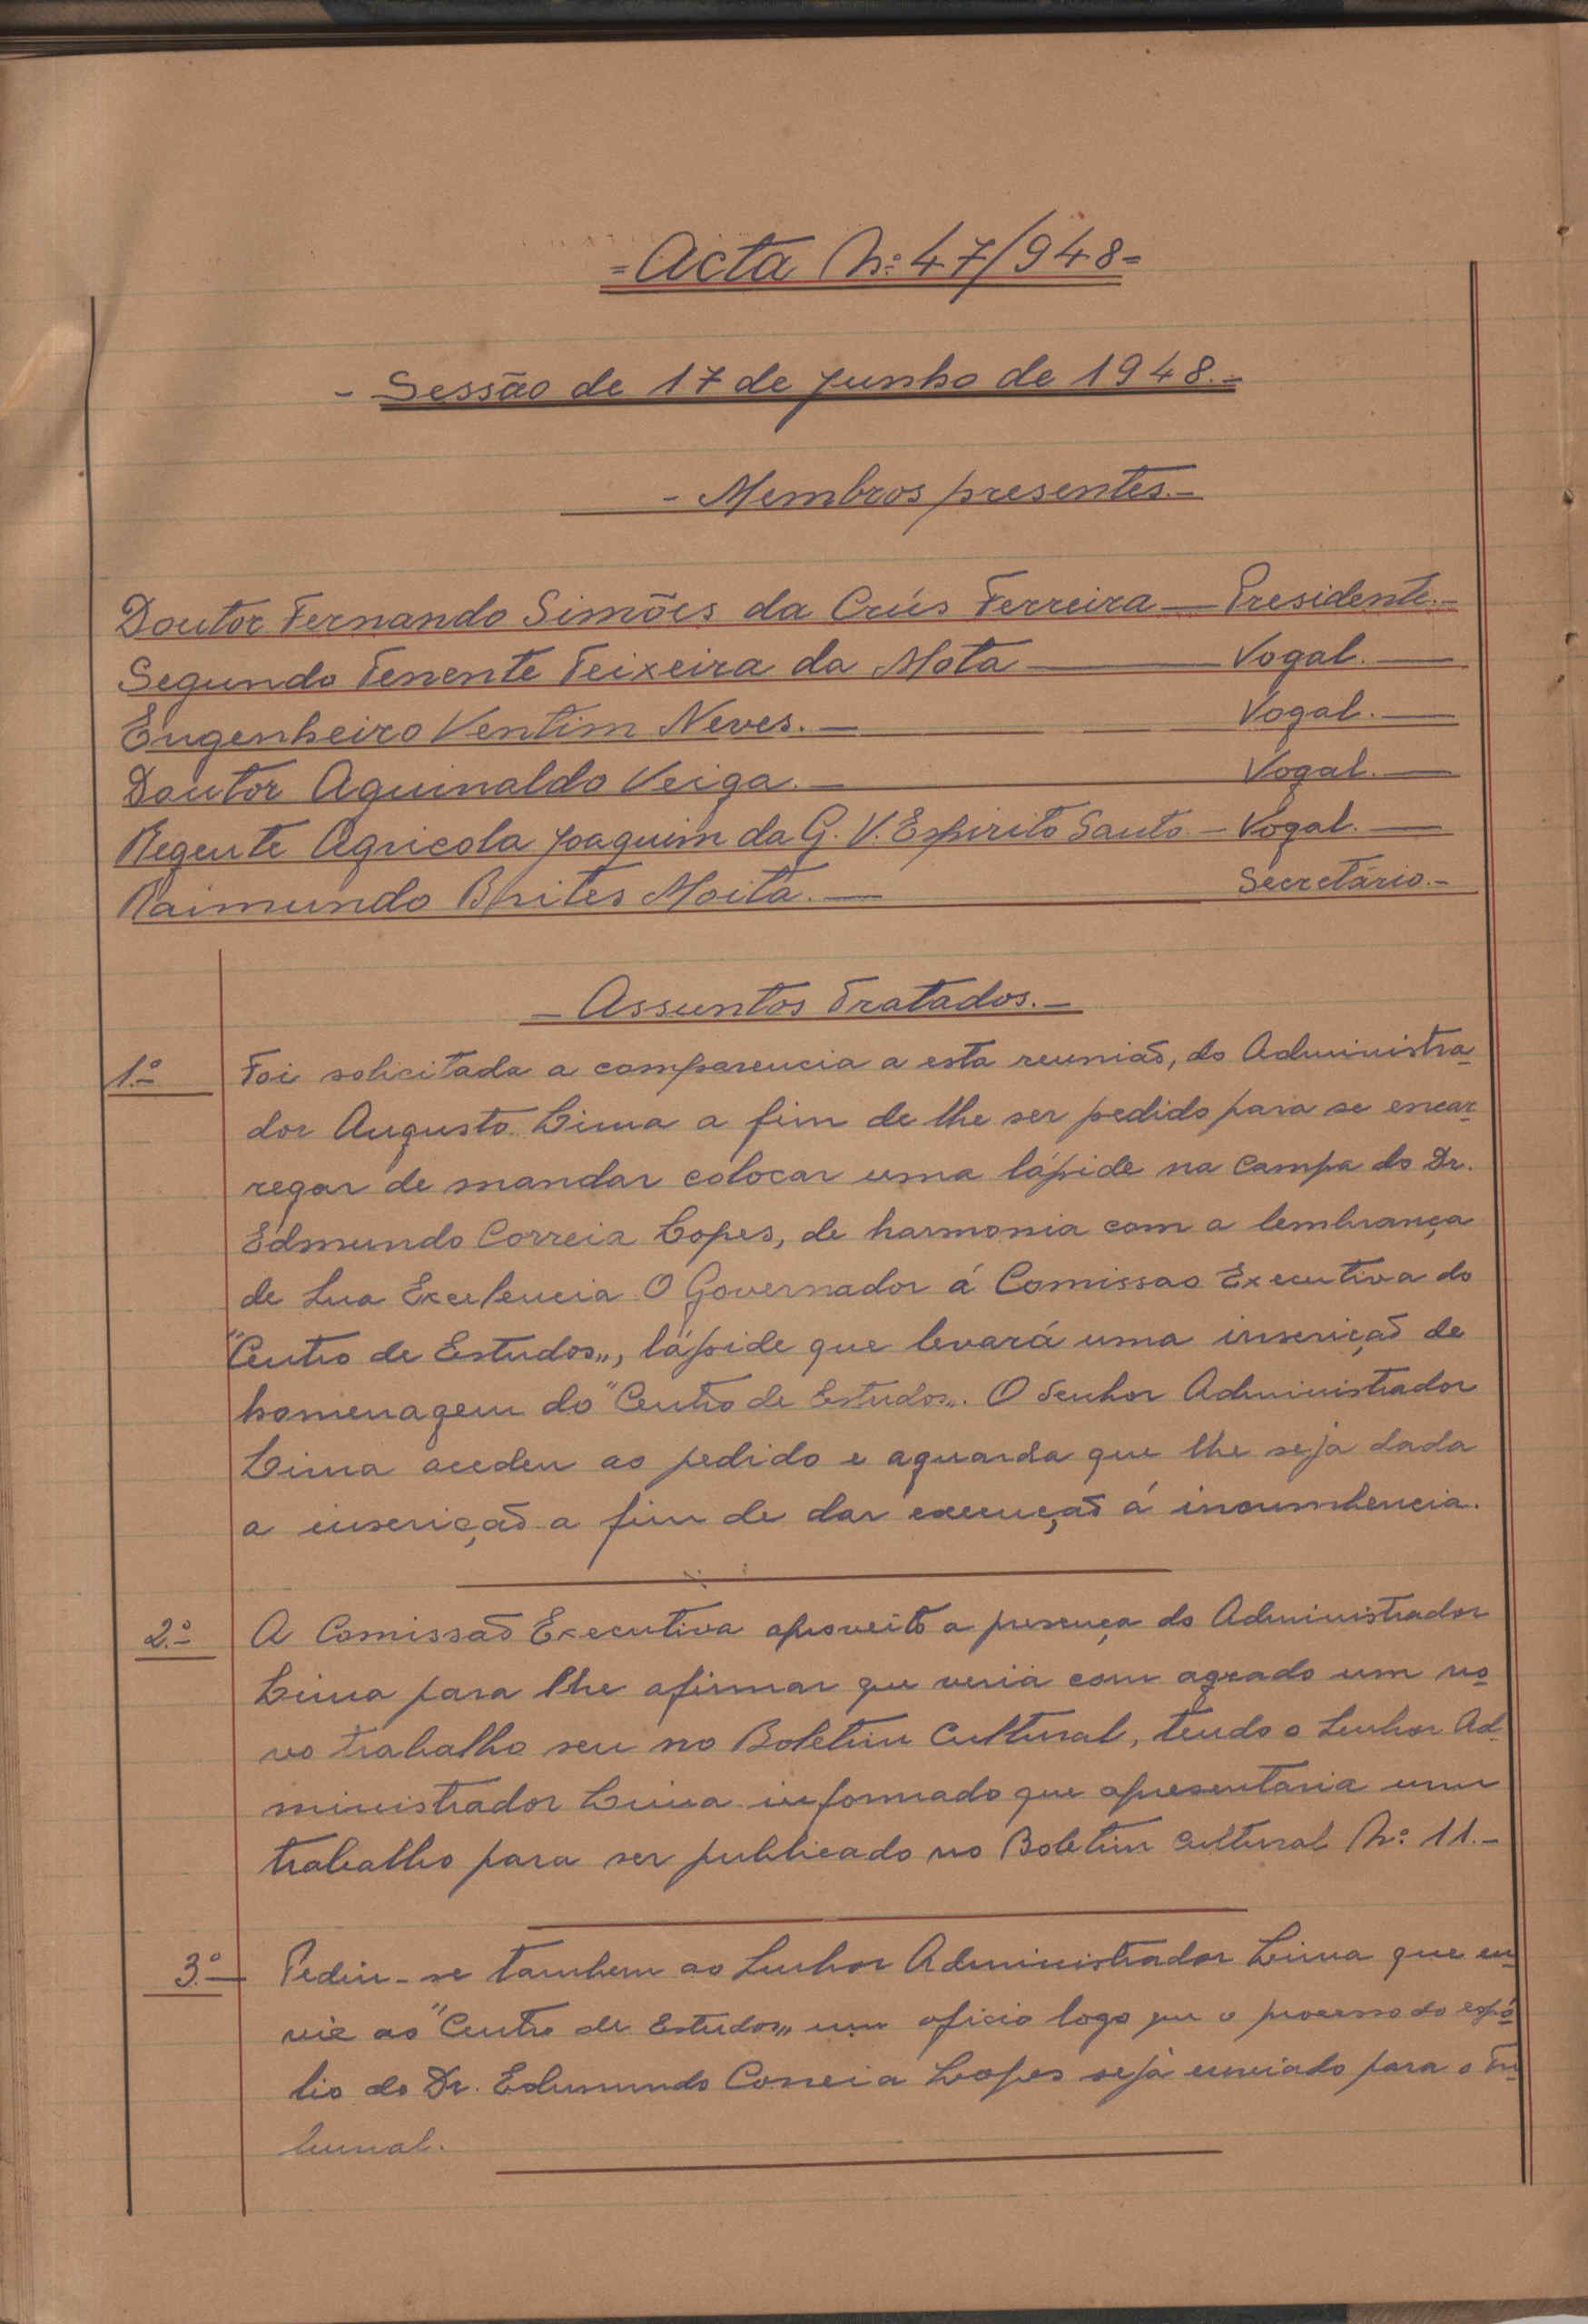 =Acta Nº 47/948=
- Sessão de 17 de Junho de 1948.-
- Membros presentes.-
Doutor Fernando Simões da Crús Ferreira — Presidente.-
Segundo Tenente Teixeira da Mota — Vogal. —
Engenheiro Ventim Neves. — Vogal. —
Doutor Aguinaldo Veiga. — Vogal. —
Regente Agricola Joaquim da G. V. Espirito Santo — Vogal. —
Raimundo Brites Moita. — Secretário.-
- Assuntos Tratados.-
1.º Foi solicitada a comparencia a esta reunião, do Administra-
dor Augusto Lima a fim de lhe ser pedido para se encar-
regar de mandar colocar uma lápide na campa do Dr.
Edmundo Correia Lopes, de harmonia com a lembrança
de Sua Excelencia O Governador á Comissao Executiva do
"Centro de Estudos„, lápide que levará uma inscrição de
homenagem do "Centro de Estudos„. O Senhor Administrador
Lima acedeu ao pedido e aguarda que lhe seja dada
a inscrição a fim de dar execução á incumbencia.
2.º A Comissão Executiva aproveito a presença do Administrador
Lima para lhe afirmar que veria com agrado um no-
vo trabalho seu no Boletim Cultural, tendo o Senhor Ad-
ministrador Lima informado que apresentaria um
trabalho para ser publicado no Boletim Cultural Nº 11.-
3.º Pediu-se tambem ao Senhor Administrador Lima que en-
vie ao "Centro de Estudos„ um oficio logo que o processo do espó-
lio do Dr. Edmundo Correia Lopes seja enviado para o Tri-
bunal.